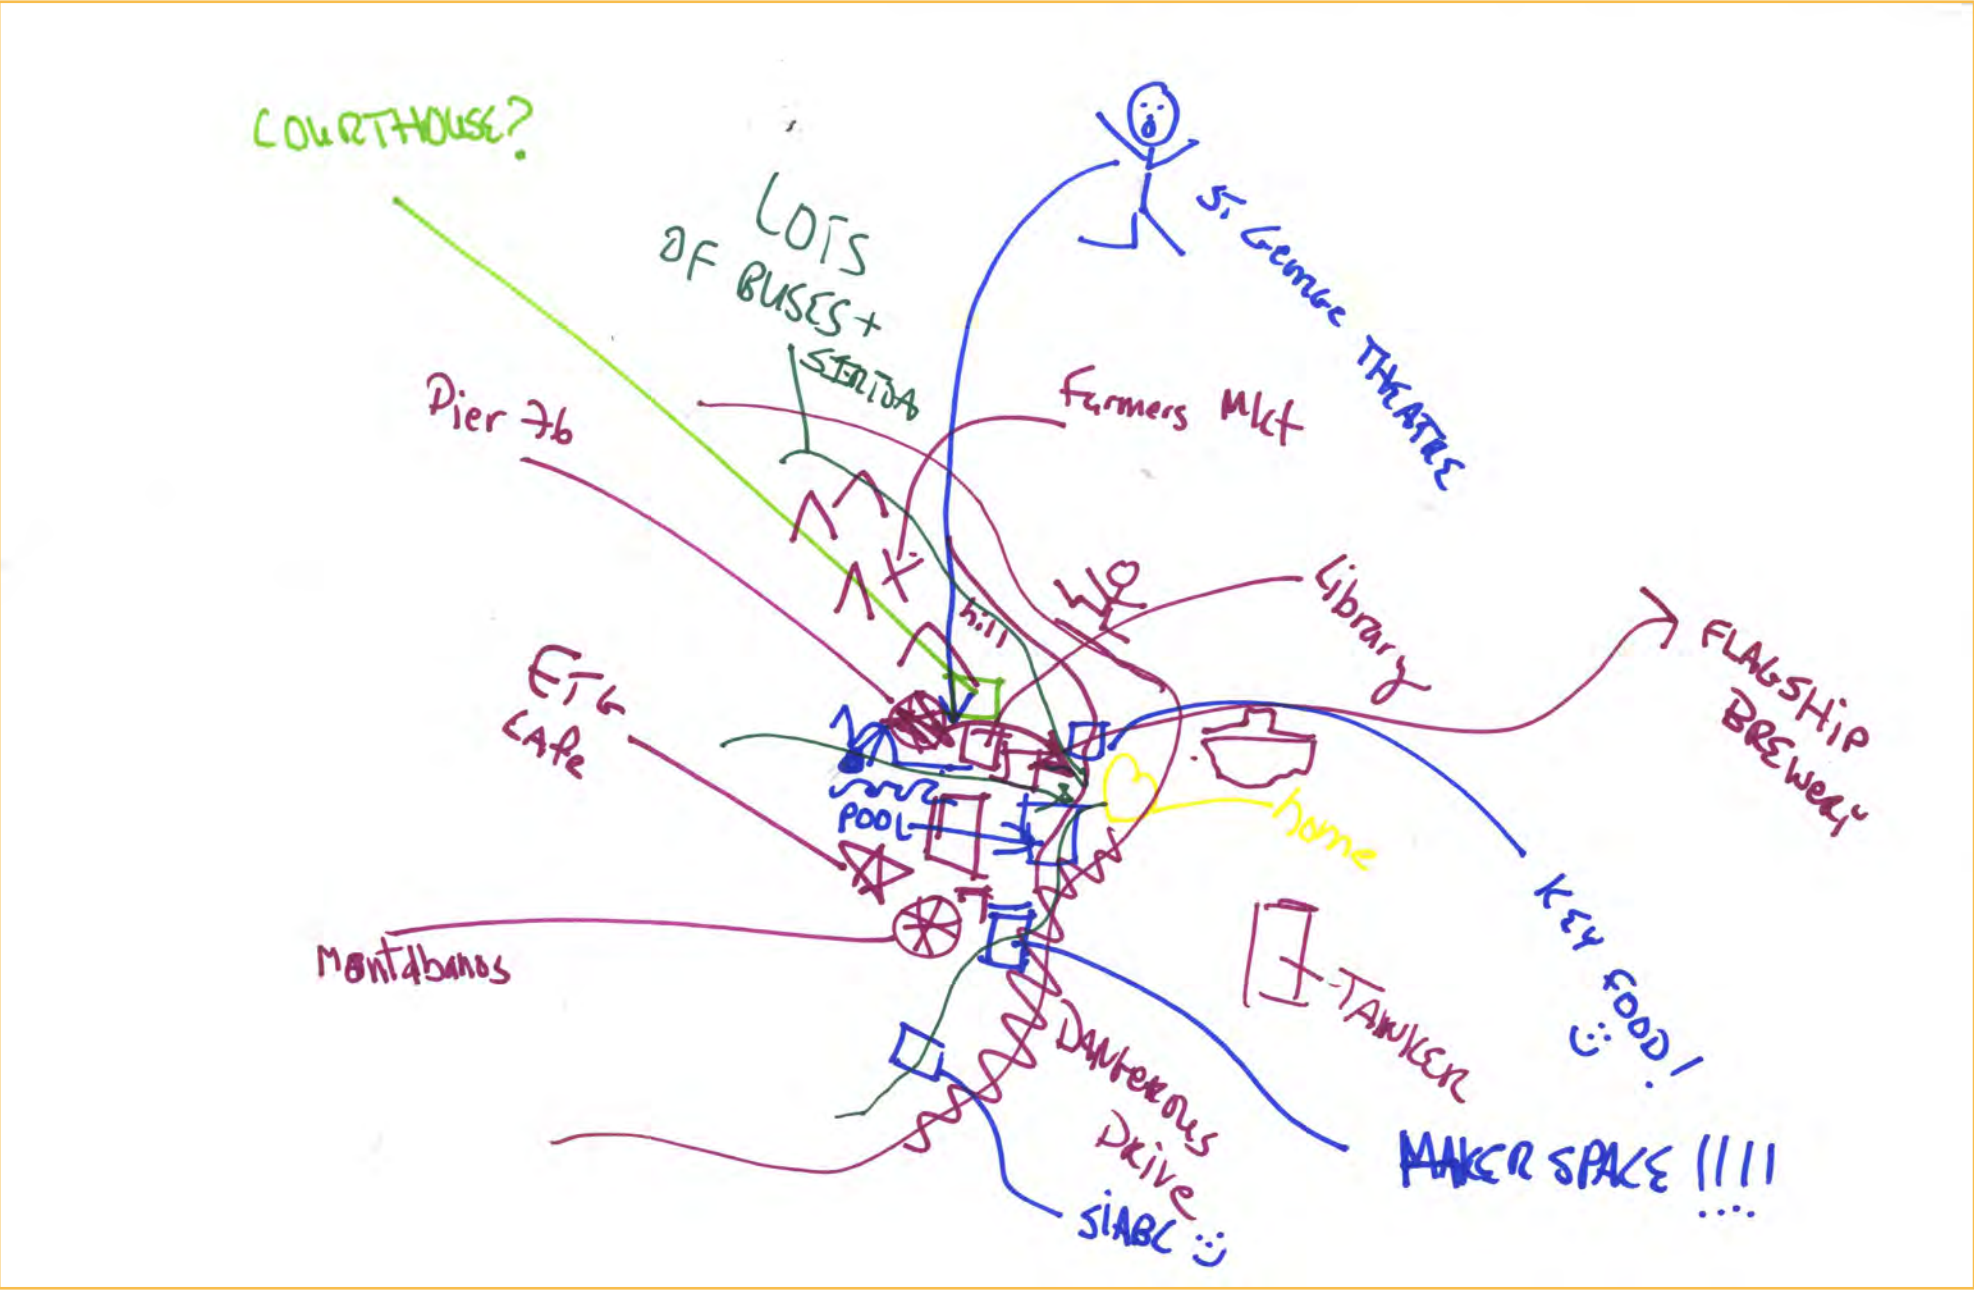 COURTHOUSE?
LOTS
OF BUSES +
SIRTOA
ST GEORGE THEATRE
Pier 76
Farmers Mkt
hill
Library
FLAGSHIP
BREWERY
ETG
CAFe
POOL
home
KEY FOOD!
Montalbanos
TANKER
DANGEROUS
DRIVE
MAKER SPACE !!!!
SIABC